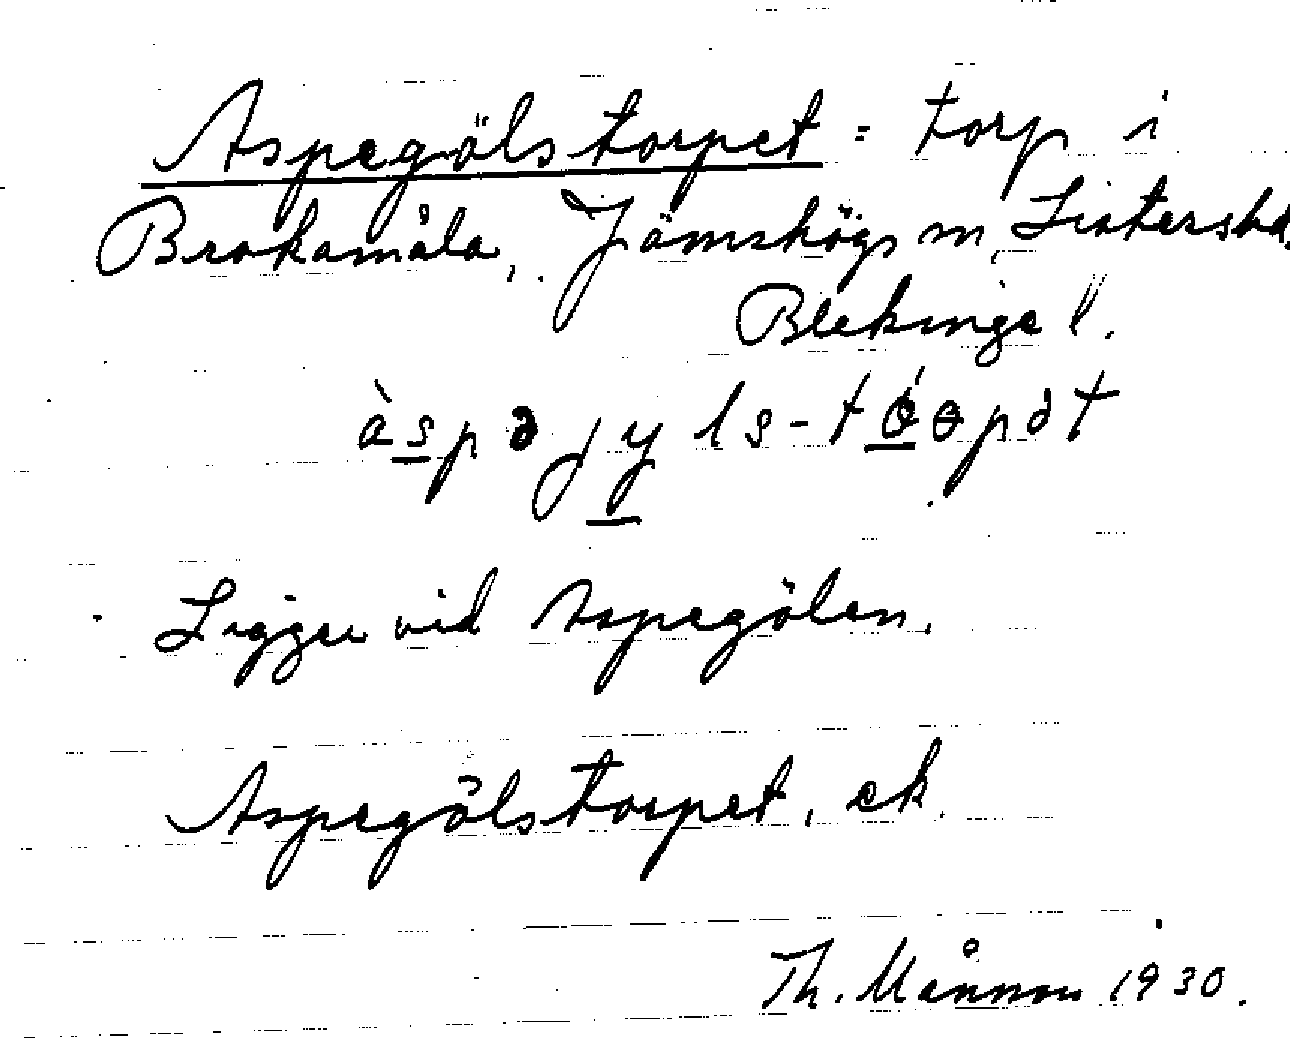 Aspegölstorpet = torp i
Brokamåla, Jämshögs sn, Listers hd.
Blekinge l.
àspəjyls-tóɵpət
Ligger vid Aspegölen.
Aspegölstorpet, ek.
Th. 1930.